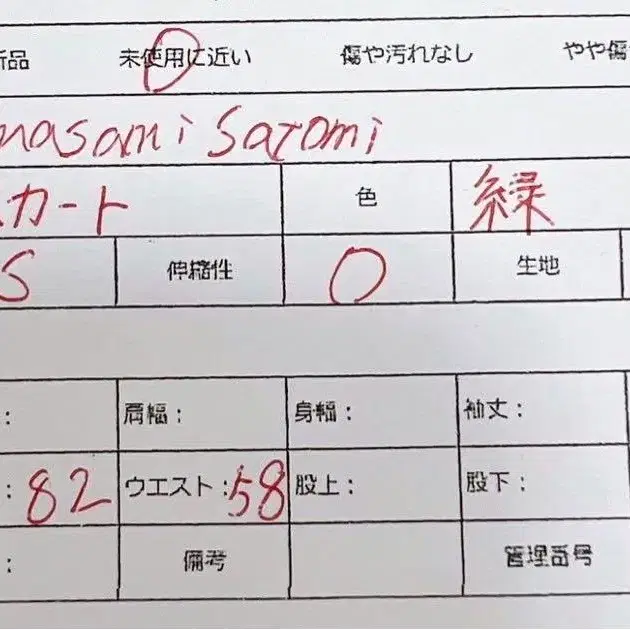 新品 未使用に近い 傷や汚れなし やや傷
masami Satomi
スカート 色 緑
S 伸縮性 O 生地
: 肩幅: 身幅: 袖丈:
: 82 ウエスト: 58 股上: 股下:
: 備考 管理番号